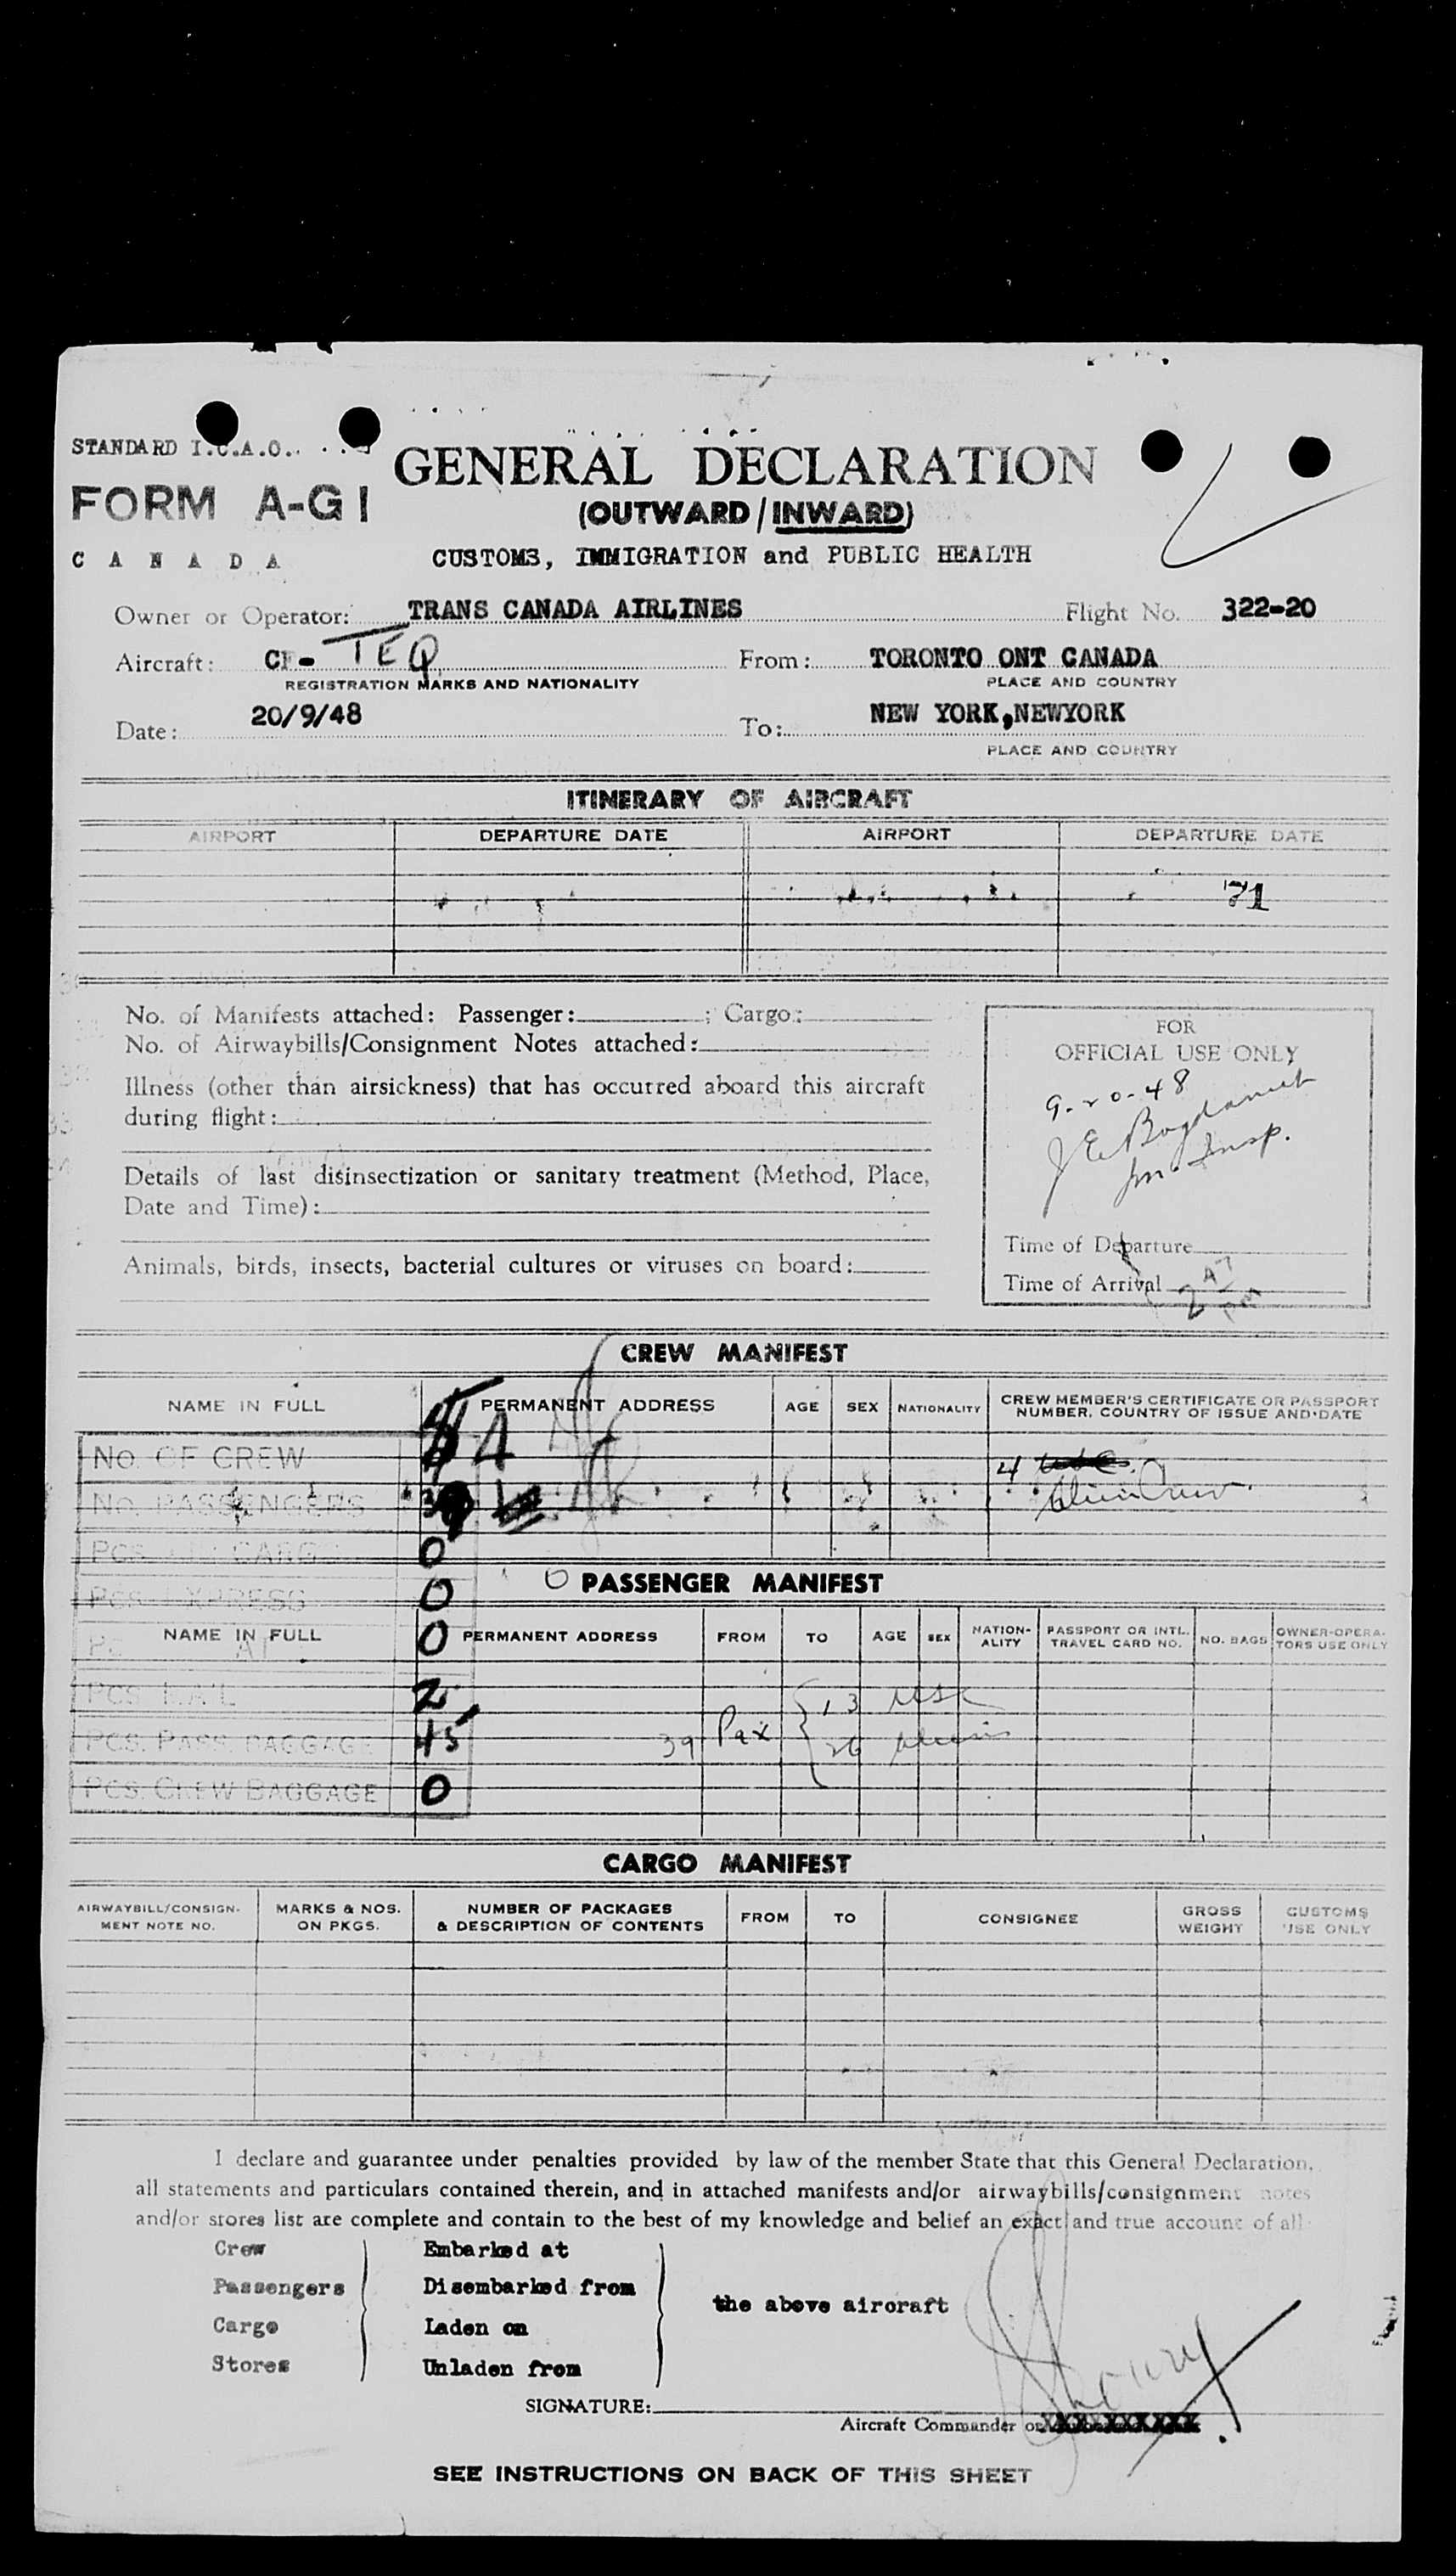 STANDARD I.C.A.O.
FORM A-G1
CANADA
GENERAL DECLARATION
(OUTWARD/INWARD)
CUSTOMS, IMMIGRATION and PUBLIC HEALTH
Owner or Operator: TRANS CANADA AIRLINES Flight No. 322-20
Aircraft: CF- TEQ From: TORONTO ONT CANADA
REGISTRATION MARKS AND NATIONALITY PLACE AND COUNTRY
Date: 20/9/48 To: NEW YORK,NEWYORK
PLACE AND COUNTRY
ITINERARY OF AIRCRAFT
AIRPORT DEPARTURE DATE AIRPORT DEPARTURE DATE
71
No. of Manifests attached: Passenger: ; Cargo:
No. of Airwaybills/Consignment Notes attached:
Illness (other than airsickness) that has occurred aboard this aircraft
during flight:
Details of last disinsectization or sanitary treatment (Method, Place,
Date and Time):
Animals, birds, insects, bacterial cultures or viruses on board:
FOR
OFFICIAL USE ONLY
9-20-48
Insp.
Time of Departure
Time of Arrival 2 47 PM
CREW MANIFEST
NAME IN FULL PERMANENT ADDRESS AGE SEX NATIONALITY CREW MEMBER'S CERTIFICATE OR PASSPORT
NUMBER, COUNTRY OF ISSUE AND DATE
No. OF CREW 4
4
No. PASSENGERS
Alien Crew
PCS. CARGO 0
PASSENGER MANIFEST
PCS. EXPRESS 0
NAME IN FULL 0 PERMANENT ADDRESS FROM TO AGE SEX NATION-
ALITY PASSPORT OR INTL.
TRAVEL CARD NO. NO. BAGS OWNER-OPERA-
TORS USE ONLY
PCS. MAIL 2
13 USC
PCS. PASS. BAGGAGE 45
39 Pax 26 Aliens
PCS. CREW BAGGAGE 0
CARGO MANIFEST
AIRWAYBILL/CONSIGN-
MENT NOTE NO. MARKS & NOS.
ON PKGS. NUMBER OF PACKAGES
& DESCRIPTION OF CONTENTS FROM TO CONSIGNEE GROSS
WEIGHT CUSTOMS
USE ONLY
I declare and guarantee under penalties provided by law of the member State that this General Declaration,
all statements and particulars contained therein, and in attached manifests and/or airwaybills/consignment notes
and/or stores list are complete and contain to the best of my knowledge and belief an exact and true account of all
Crew Embarked at
Passengers Disembarked from
the above aircraft
Cargo Laden on
Stores Unladen from
SIGNATURE:
Aircraft Commander or
SEE INSTRUCTIONS ON BACK OF THIS SHEET